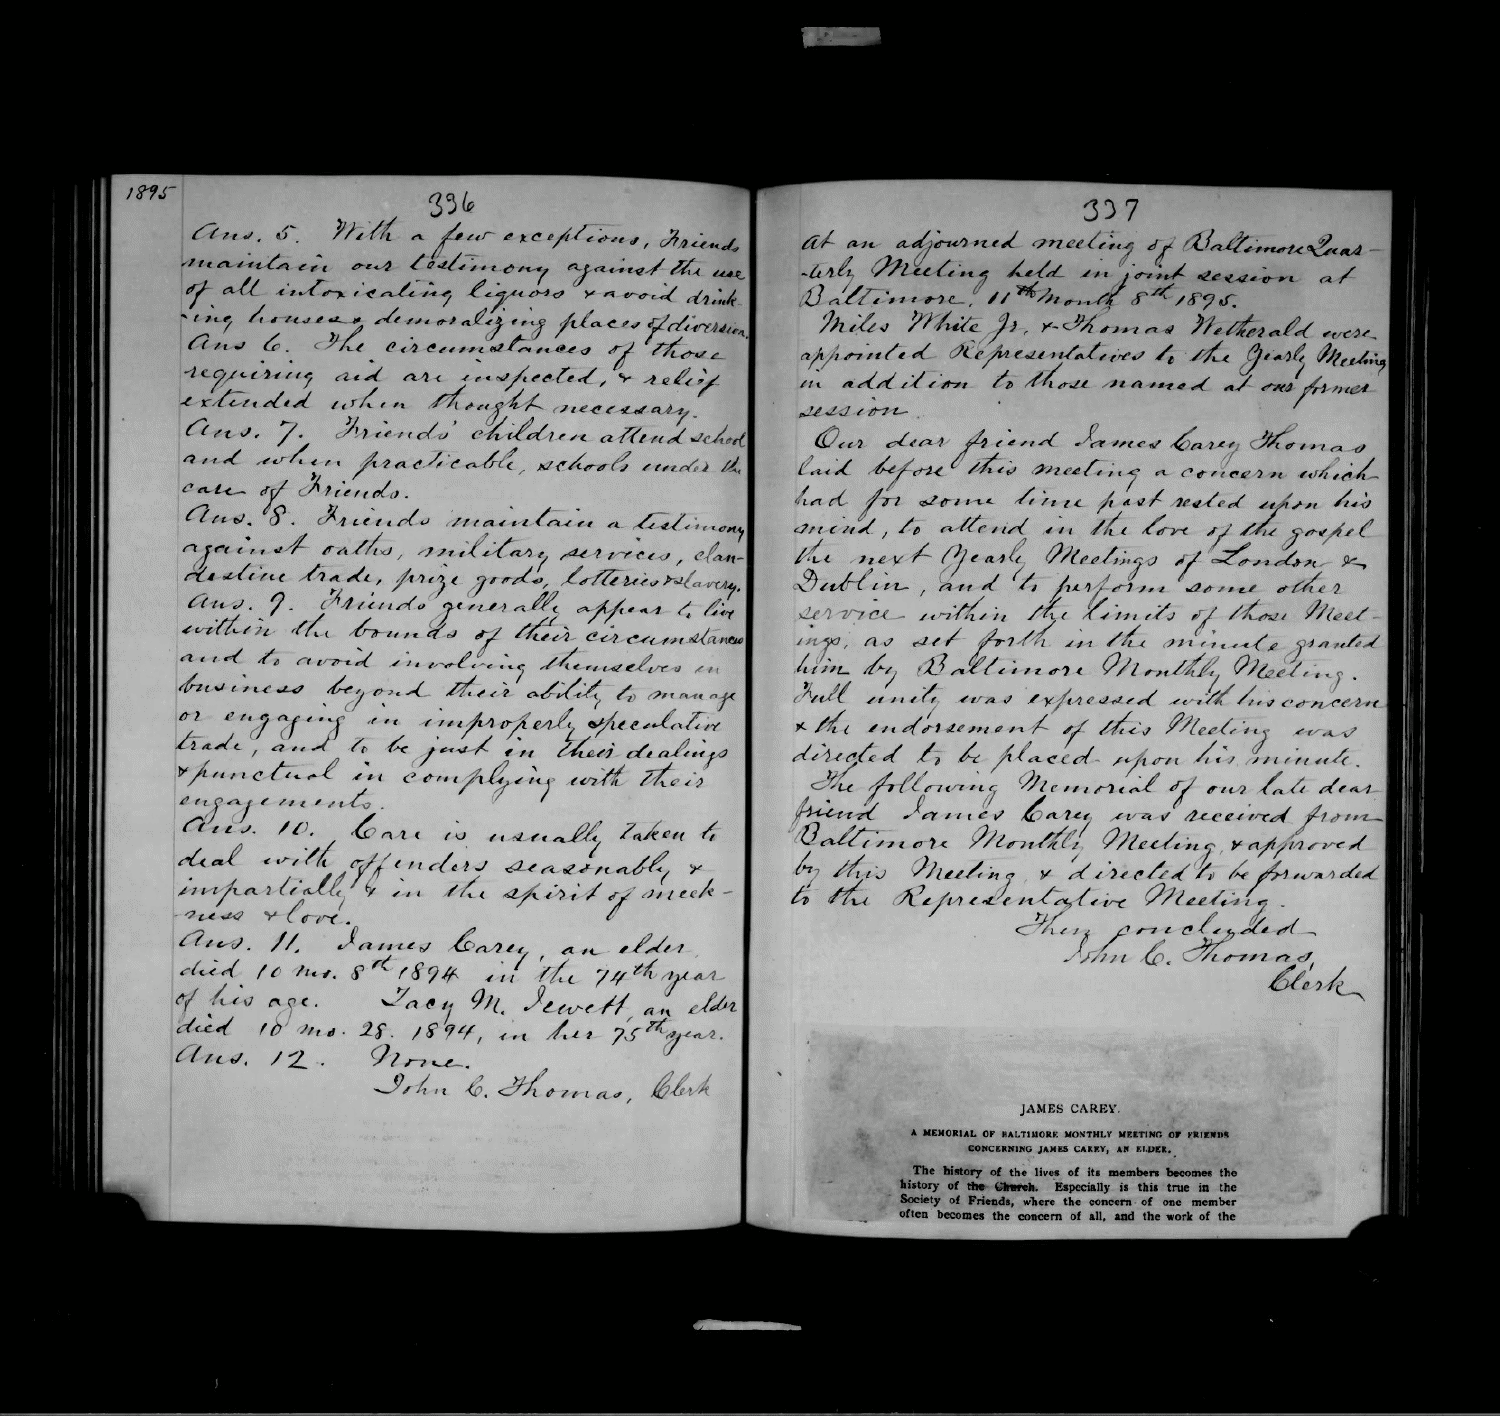 1895
336
Ans. 5. With a few exceptions, Friends
maintain our testimony against the use
of all intoxicating liquors & avoid drink-
-ing houses & demoralizing places of diversion.
Ans 6. The circumstances of those
requiring aid are inspected, & relief
extended when thought necessary.
Ans. 7. Friends' children attend school
and when practicable, schools under the
care of Friends.
Ans. 8. Friends maintain a testimony
against oaths, military services, clan-
destine trade, prize goods, lotteries & slavery.
Ans. 9. Friends generally appear to live
within the bounds of their circumstances
and to avoid involving themselves in
business beyond their ability to manage
or engaging in improperly speculative
trade, and to be just in their dealings
& punctual in complying with their
engagements.
Ans. 10. Care is usually taken to
deal with offenders seasonably &
impartially & in the spirit of meek-
-ness & love.
Ans. 11. James Carey, an elder,
died 10 mo. 8th 1894 in the 74th year
of his age. Tacy M. Jewett, an elder
died 10 mo. 28. 1894, in her 75th year.
Ans. 12. None.
John C. Thomas, Clerk
337
At an adjourned meeting of Baltimore Quar-
-terly Meeting held in joint session at
Baltimore, 11th Month 8th 1895.
Miles White Jr. & Thomas Wetherald were
appointed Representatives to the Yearly Meeting
in addition to those named at our former
session.
Our dear friend James Carey Thomas
laid before this meeting a concern which
had for some time past rested upon his
mind, to attend in the love of the gospel
the next Yearly Meetings of London &
Dublin, and to perform some other
service within the limits of those Meet-
ings, as set forth in the minute granted
him by Baltimore Monthly Meeting.
Full unity was expressed with his concern
& the endorsement of this Meeting was
directed to be placed upon his minute.
The following Memorial of our late dear
friend James Carey was received from
Baltimore Monthly Meeting, & approved
by this Meeting & directed to be forwarded
to the Representative Meeting.
Then concluded
John C. Thomas,
Clerk
JAMES CAREY.
A MEMORIAL OF BALTIMORE MONTHLY MEETING OF FRIENDS
CONCERNING JAMES CAREY, AN ELDER.
The history of the lives of its members becomes the
history of the Church. Especially is this true in the
Society of Friends, where the concern of one member
often becomes the concern of all, and the work of the